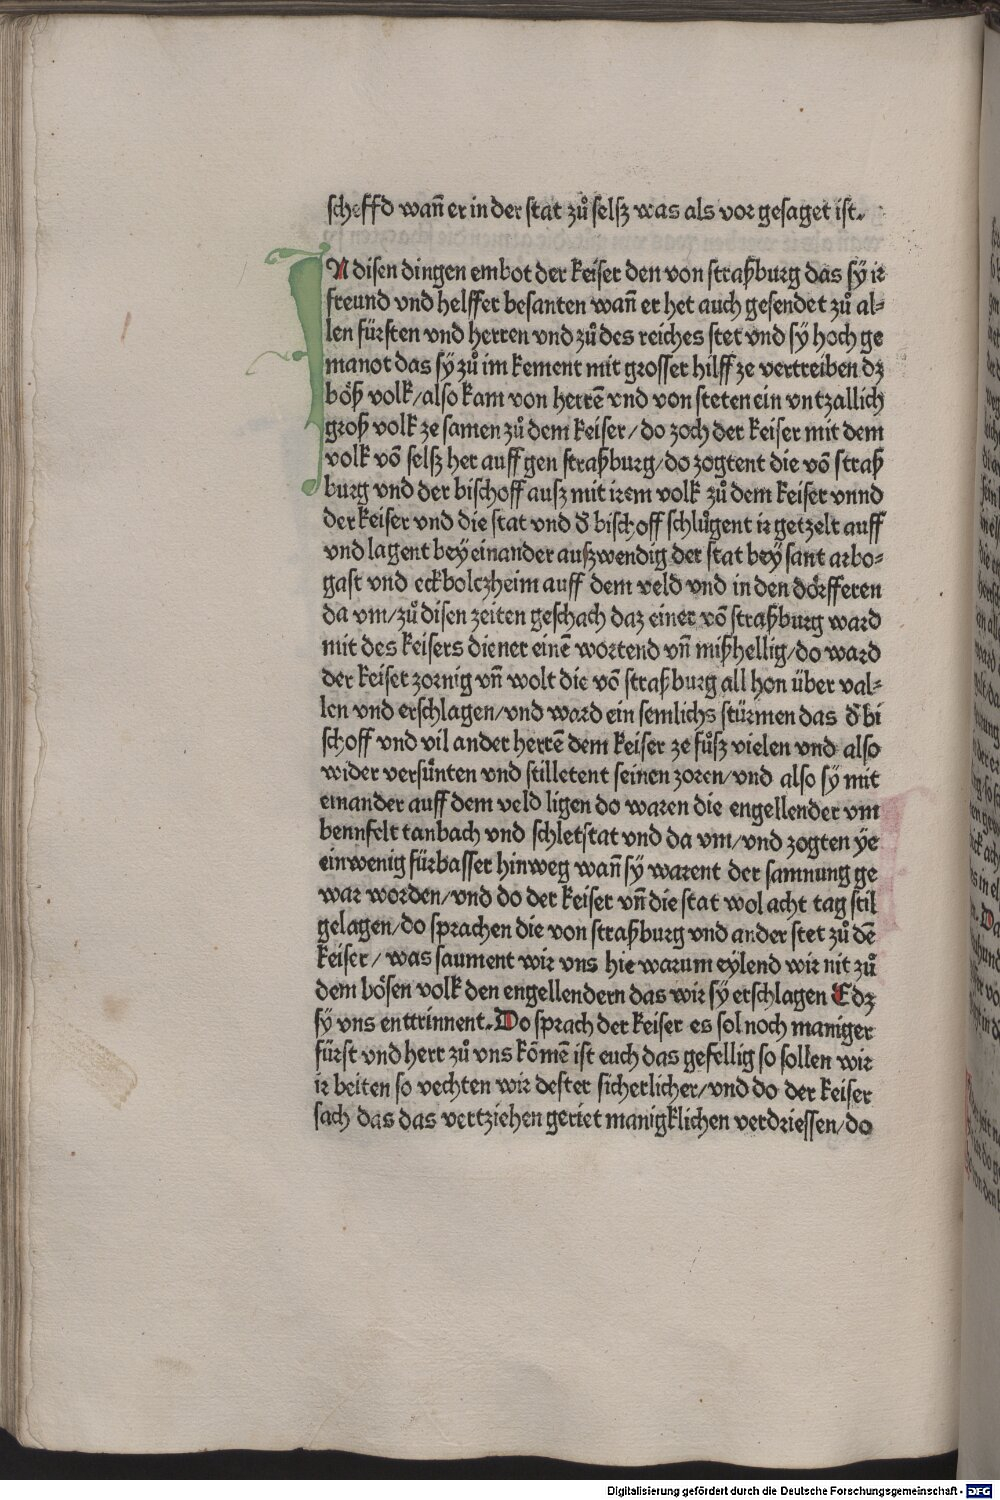 scheffd wañ er in der stat zuͦ selsz was als vor gesaget ist.
IN disen dingen embot der keiser den von straßburg das sÿ ir
freund vnd helffer besanten wañ er het auch gesendet zuͦ al⸗
len fürsten vnd herren vnd zuͦ des reiches stet vnd sÿ hoch ge
manot das sÿ zuͦ im kement mit grosser hilff ze vertreiben dz
böß volk/also kam von herrē vnd von steten ein vntzallich
groß volk ze samen zuͦ dem keiser/do zoch der keiser mit dem
volk vō selsz her auff gen straßburg/do zogtent die vō straß
burg vnd der bischoff ausz mit irem volk zuͦ dem keiser vnnd
der keiser vnd die stat vnd d̕ bischoff schluͦgent ir getzelt auff
vnd lagent beÿ einander auszwendig der stat beÿ sant arbo⸗
gast vnd eckbolczheim auff dem veld vnd in den dörfferen
da vm/zuͦ disen zeiten geschach daz einer vō straßburg ward
mit des keisers diener einē wortend vñ mißhellig/do ward
der keiser zornig vñ wolt die vō straßburg all hon über val⸗
len vnd erschlagen/vnd ward ein semlichs stürmen das d̕ bi
schoff vnd vil ander herrē dem keiser ze fuͦsz vielen vnd also
wider versuͤnten vnd stilletent seinen zoren/vnd also sÿ mit
einander auff dem veld ligen do waren die engellender vm
bennfelt tanbach vnd schletstat vnd da vm/vnd zogten ÿe
ein wenig fürbasser hinweg wañ sÿ warent der samnung ge
war worden/vnd do der keiser vñ die stat wol acht tag stil
gelagen/do sprachen die von straßburg vnd ander stet zuͦ dē
keiser/was saument wir vns hie warum eylend wir nit zuͦ
dem bösen volk den engellendern das wir sÿ erschlagen E dz
sÿ vns enttrinnent. Do sprach der keiser es sol noch maniger
fürst vnd herr zuͦ vns kōmē ist euch das gefellig so sollen wir
ir beiten so vechten wir dester sicherlicher/vnd do der keiser
sach das das vertziehen geriet manigklichen verdriessen/do
Digitalisierung gefördert durch die Deutsche Forschungsgemeinschaft - DFG